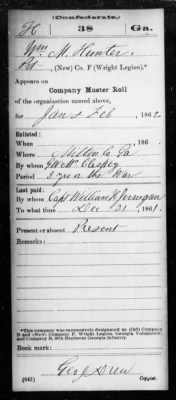 (Confederate.)
H 38 Ga.
Wm. M. Hunter
Pvt, (New) Co. F (Wright Legion).*
Appears on
Company Muster Roll
of the organization named above,
for Jan & Feb, 1862.
Enlisted:
When , 186 .
Where Milton Co Ga
By whom
Period 3 yrs or the War
Last paid:
By whom Capt William H. Jernigan
To what time Dec 31, 1861.
Present or absent Present
Remarks:
*This company was successively designated as (Old) Company
D and (New) Company F, Wright Legion, Georgia Volunteers,
and Company 38th Regiment Georgia Infantry.
(642) Geo. Copyist.